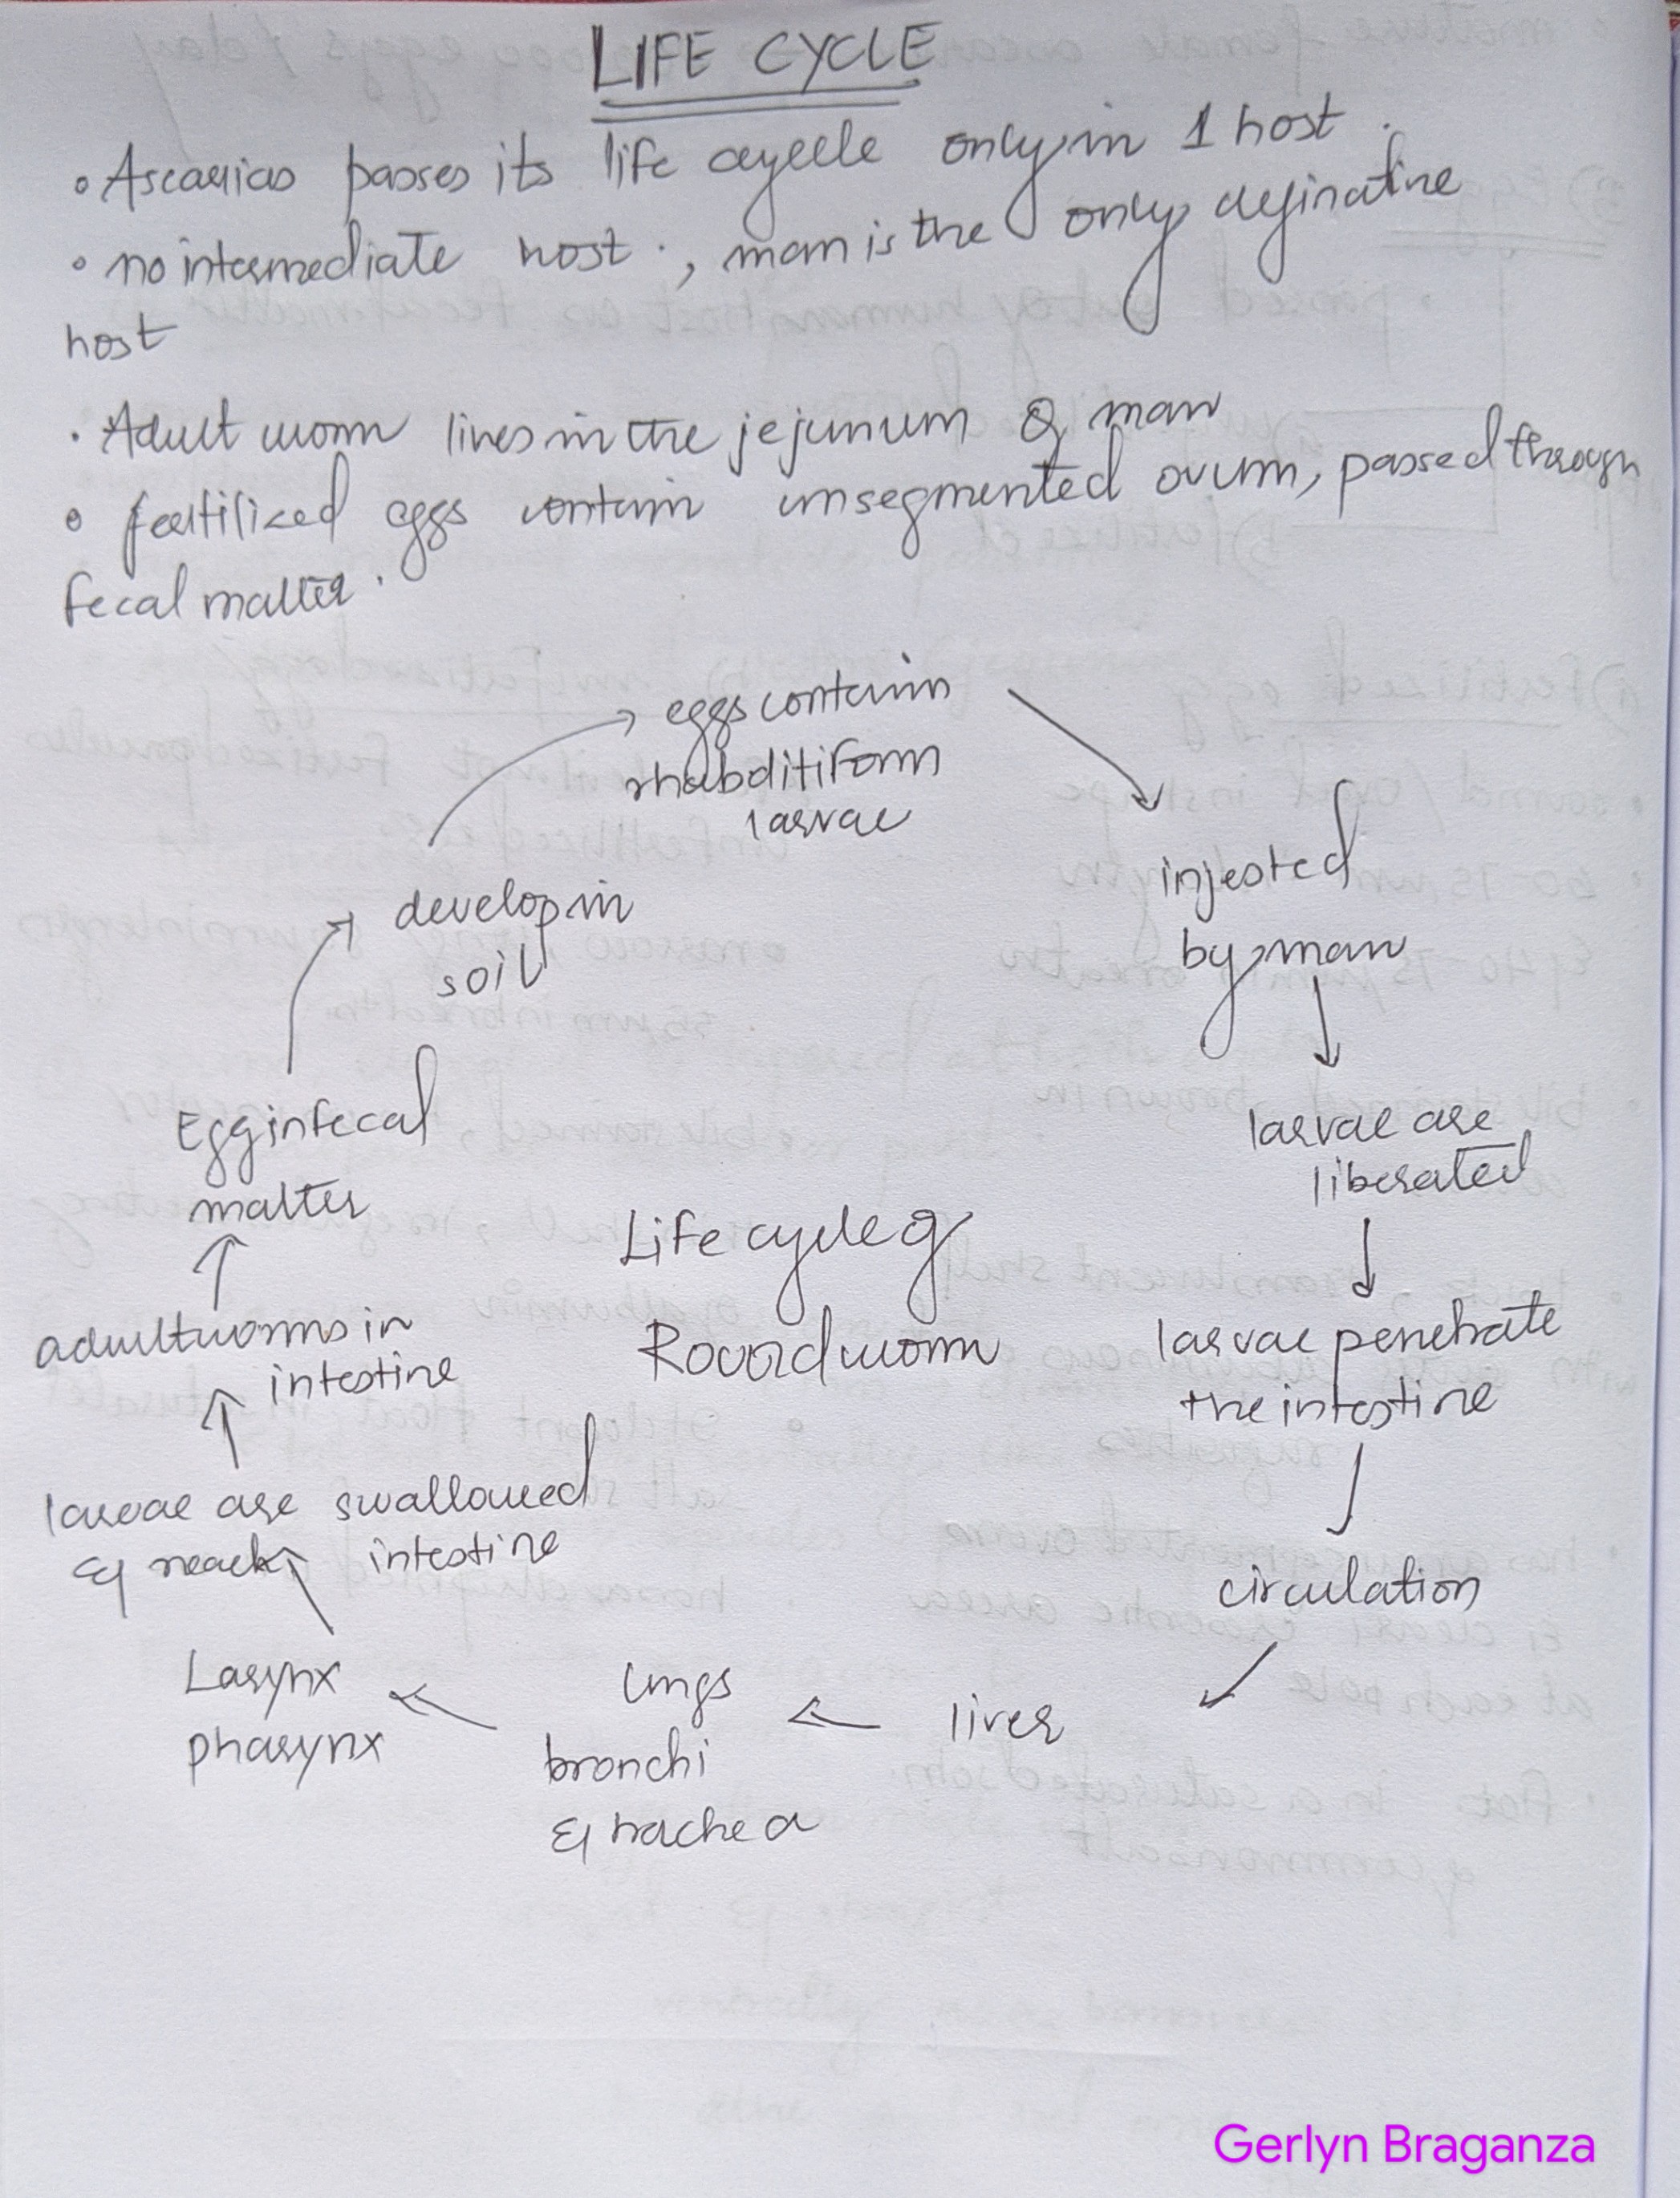 LIFE CYCLE
• Ascarias passes its life cycle only in 1 host.
• no intermediate host., man is the only definative
host
. Adult worm lives in the jejunum of man
• fertilized eggs contain unsegmented ovum, passed through
fecal matter.
eggs contain
rhabditiform
larvae
injested
by man
larvae are
liberated
larvae penetrate
the intestine
circulation
liver
lungs
bronchi
& trachea
Larynx
pharynx
larvae are swallowed
& reach intestine
adult worms in
intestine
Egg in fecal
matter
develop in
soil
Life cycle of
Roundworm
Gerlyn Braganza